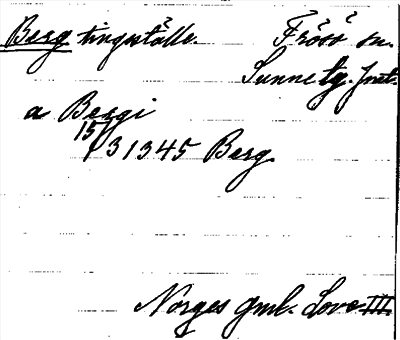 Berg tingställe. Frösö sn.
Sunne tg. Jmtl.
a Bergi
15/1 31345 Berg
Norges gml. Love III